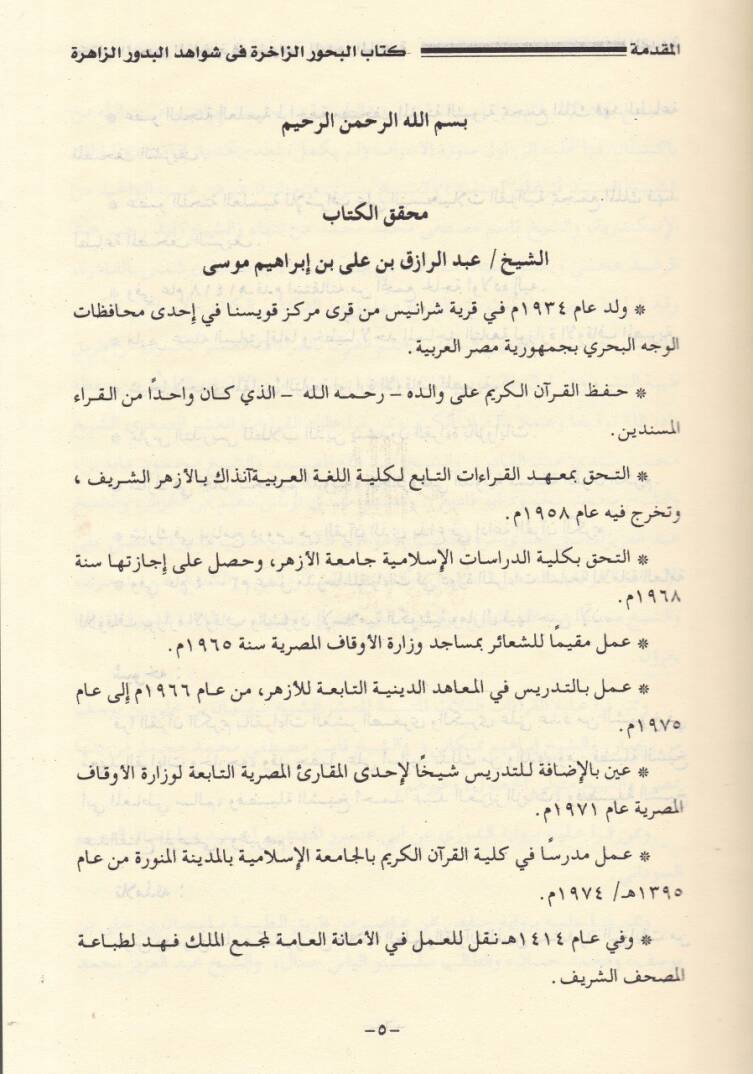 المقدمة كتاب البحور الزاخرة فى شواهد البدور الزاهرة
بسم الله الرحمن الرحيم
محقق الكتاب
الشيخ/ عبد الرازق بن على بن إبراهيم موسى
* ولد عام ١٩٣٤م في قرية شرانيس من قرى مركز قويسنا في إحدى محافظات
الوجه البحري بجمهورية مصر العربية.
* حفظ القرآن الكريم على والده - رحمه الله - الذي كان واحدًا من القراء
المسندين.
* التحق بمعهد القراءات التابع لكلية اللغة العربية آنذاك بالأزهر الشريف ،
وتخرج فيه عام ١٩٥٨م.
* التحق بكلية الدراسات الإسلامية جامعة الأزهر، وحصل على إجازتها سنة
١٩٦٨م.
* عمل مقيمًا للشعائر بمساجد وزارة الأوقاف المصرية سنة ١٩٦٥م.
* عمل بالتدريس في المعاهد الدينية التابعة للأزهر، من عام ١٩٦٦م إلى عام
١٩٧٥م.
* عين بالإضافة للتدريس شيخًا لإحدى المقارئ المصرية التابعة لوزارة الأوقاف
المصرية عام ١٩٧١م.
* عمل مدرسًا في كلية القرآن الكريم بالجامعة الإسلامية بالمدينة المنورة من عام
١٣٩٥هـ/ ١٩٧٤م.
* وفي عام ١٤١٤هـ نقل للعمل في الأمانة العامة لمجمع الملك فهد لطباعة
المصحف الشريف.
-٥-